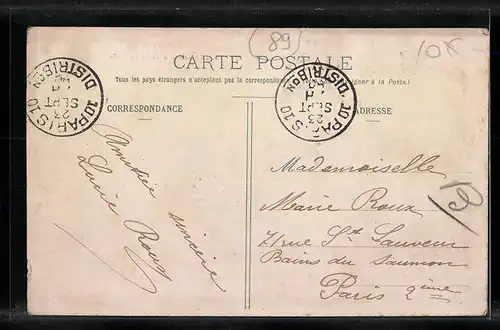 (89)
10x
CARTE POSTALE
Tous les pays étrangers n'acceptent pas la correspondance
(se renseigner à la Poste).
CORRESPONDANCE
ADRESSE
PARIS 10
23
SEPT
DISTRIBON
PARIS 10
23
SEPT
DISTRIBON
Amitié sincère
Lucie Roux
Mademoiselle
Marie Roux
71 rue St Sauveur
Bains du Saumon
Paris 2ème
B